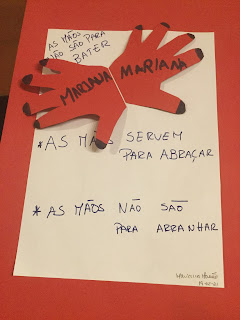 AS MÃOS
NÃO SÃO PARA
BATER
MARIANA MARIANA
* AS MÃOS SERVEM
PARA ABRAÇAR
* AS MÃOS NÃO SÃO
PARA ARRANHAR